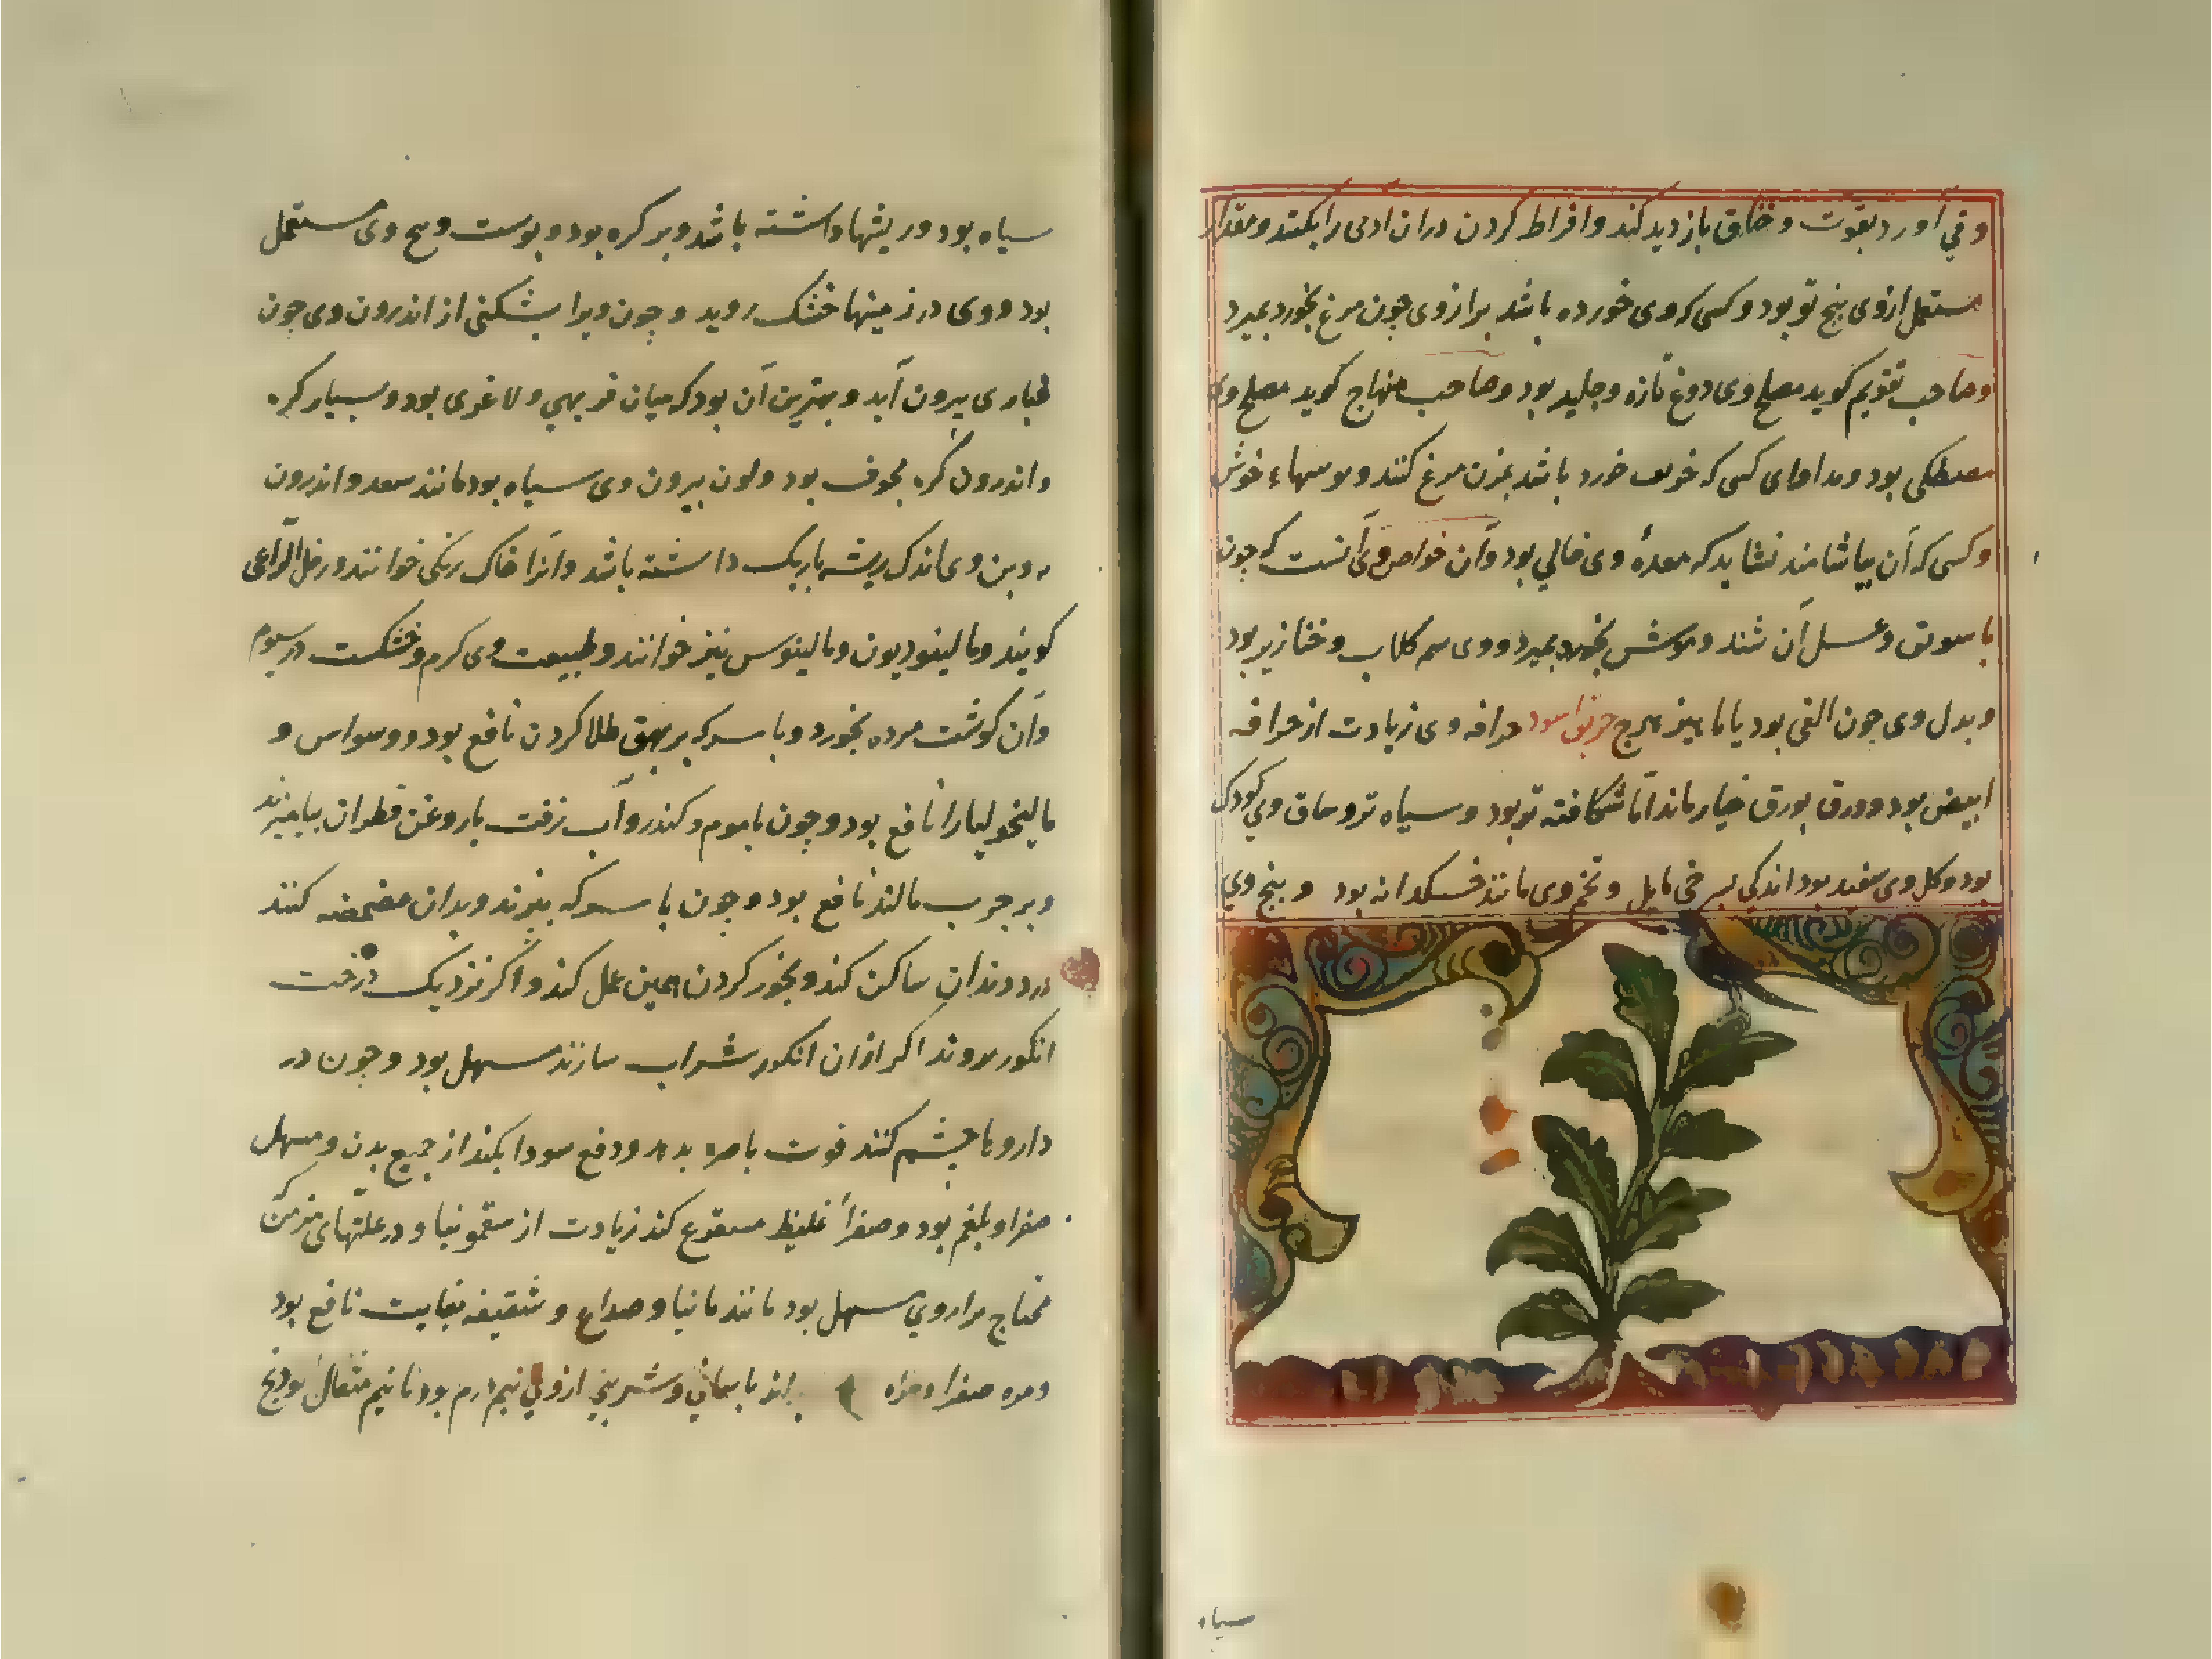 و قی آورد بقوت و خناق بازدید کند و افراط کردن دران ادمی را بکشد و مقدار
مستعمل ازوی پنج تو بود و کسی که وی خورده باشد برازوی چون مرغ بخورد بمیرد
و صاحب تقویم کوید مصلح وی دوغ تازه و جلید بود و صاحب منهاج کوید مصلح وی
مصطکی بود و مداوای کسی که خورد باشد مرغ کنند و خوش
و کسی که آن بیاشامند نشاید که معدهٔ وی خالی بود و آن خواص وی آنست که چون
با سویق و عسل آن شند و موش بخورد بمیرد و وی سم کلاب و خنازیر بود
و بدل وی جون القی بود یا ماهیزهرج خربق اسود حرافه وی زیادت از حرافه
ابیض بود و ورق بورق خیار ماند اما شکافته تر بود و سیاه تر و ساق وی کودک
بود و کل وی سفید بود اندکی بسرخی مایل و تخم وی مانند خسکدانه بود و بیخ وی
سیاه
سیاه بود و ریشها داشته باشد و بر کره بود و پوست و بیخ وی مستعمل
بود و وی در زمینها خشک روید و چون ویرا بشکنی از اندرون وی چون
غباری بیرون آید و بهترین آن بود که میان فربهی و لاغری بود و بسیار کره
و اندرون کره مجوف بود و لون بیرون وی سیاه بود مانند سعد و اندرون
و بن وی اندک ریشه باریک داشته باشد و آنرا خاک زنکی خوانند و رجل الراعی
کویند و مالینودیون و مالینوس نیز خوانند و طبیعت وی کرم و خشکست در سیوم
و آن کوشت مرده بخورد و با سرکه بر بهق طلا کردن نافع بود و وسواس و
مالیخولیا را نافع بود و چون باموم و کندر و آب زفت با روغن قطران بیامیزند
و بر جرب مالند نافع بود و چون با سرکه بپزند و بدان مضمضه کنند
درد دندان ساکن کند و بخور کردن همین عمل کند و اگر نزدیک درخت
انکور بروید اکر ازان انکور شراب سازند مسهل بود و چون در
داروها چشم کنند قوت باصره بدهد و دفع سودا بکند از جمیع بدن و مسهل
صفرا و بلغم بود و صفرآ غلیظ مستفرغ کند زیادت از سقمونیا و در علتهای مزمن
محتاج بداروی مسهل بود مانند مانیا و صداع و شقیقه بغایت نافع بود
و مره صفرا براند باسانی و شربتی ازوی نیم درم بود تا نیم مثقال بود بیخ